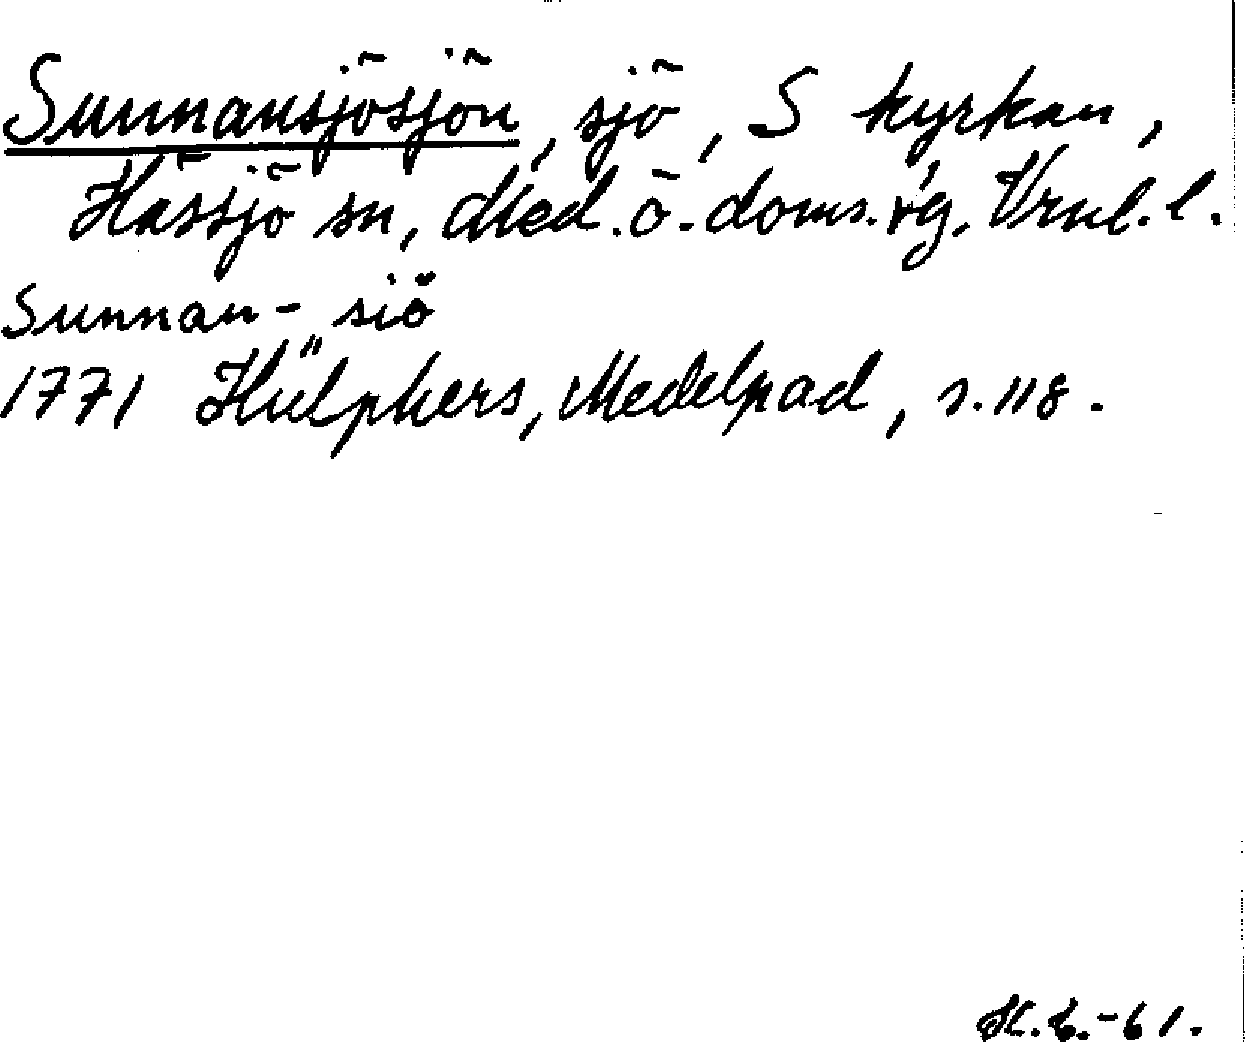 Sunnansjösjön, sjö, S kyrkan,
Hässjö sn, Med. ö. doms. fög. Vrnl. l.
Sunnan-siö
1771 Hülphers, Medelpad, s. 118.
K.L.-61.